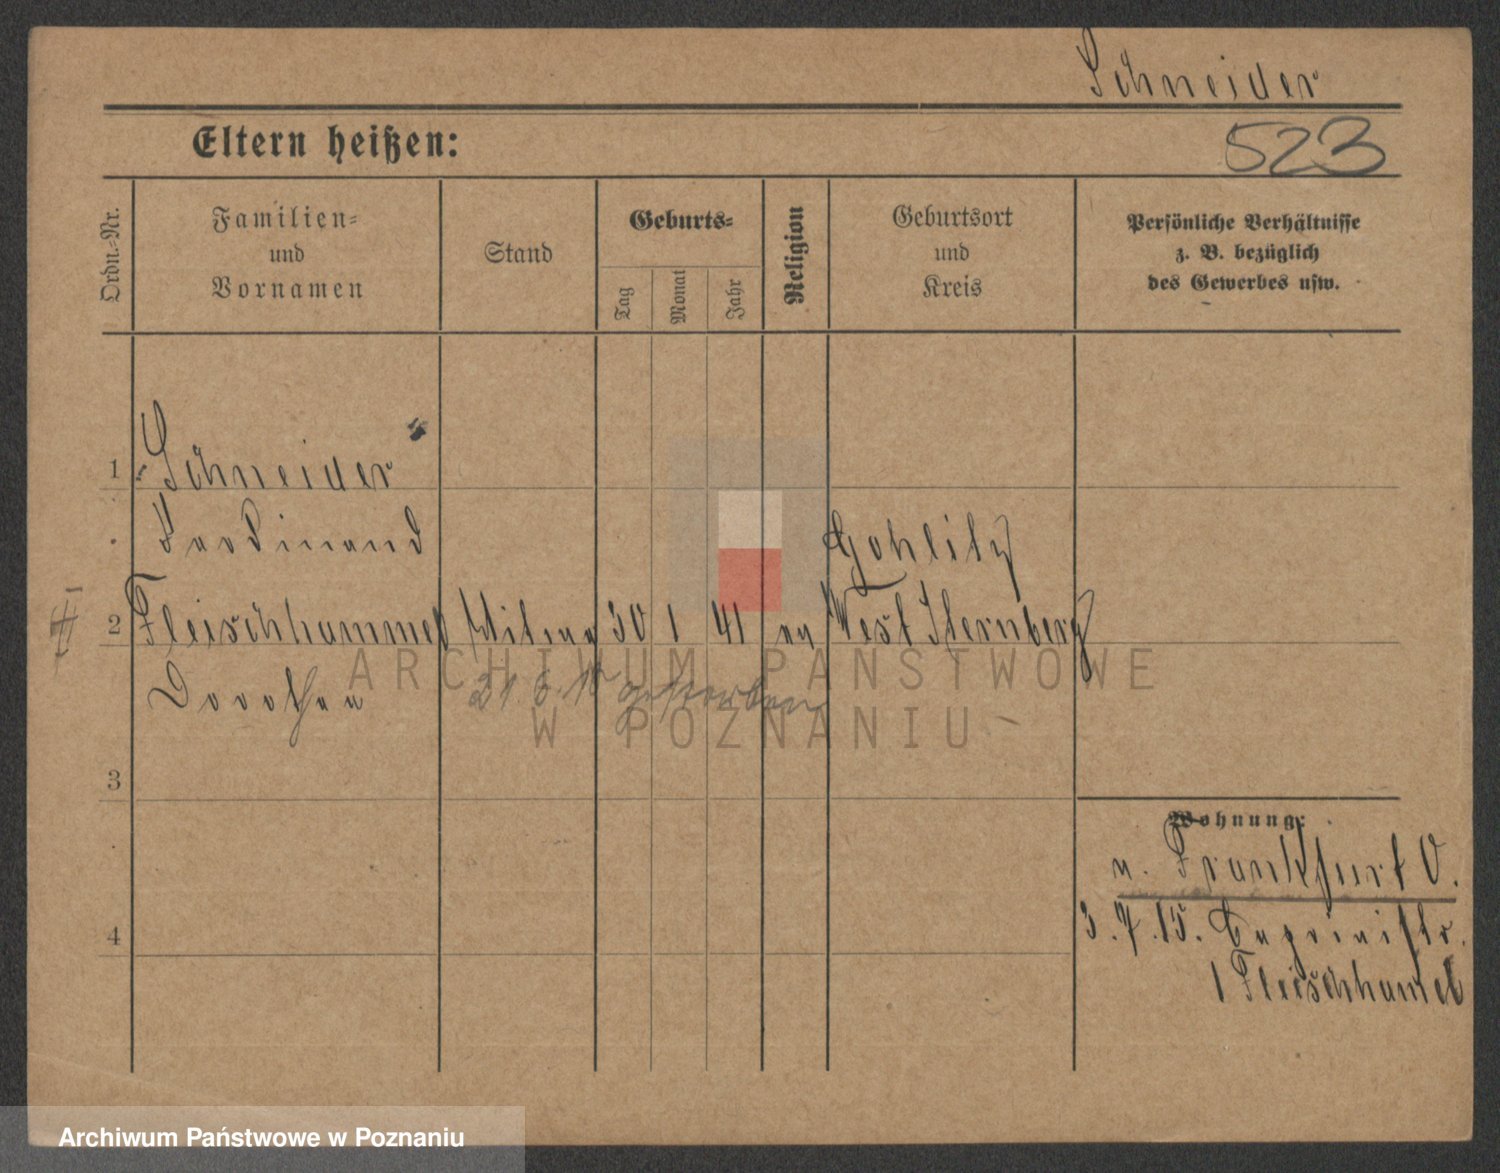 Schneider
Eltern heißen:
523
Ordn.-Nr.
Familien-
und
Vornamen
Stand
Geburts-
Tag
Monat
Jahr
Religion
Geburtsort
und
Kreis
Persönliche Verhältnisse
z. B. bezüglich
des Gewerbes usw.
1
Schneider
Ferdinand
Gohlitz
2
Fleischhammel Witwe 30 1 41 ev West Sternberg
Dorothea
gestorben
ARCHIWUM PAŃSTWOWE
W POZNANIU
3
Wohnung:
n. Frankfurt O.
4
3.7.15.
1 Fleischhamel
Archiwum Państwowe w Poznaniu